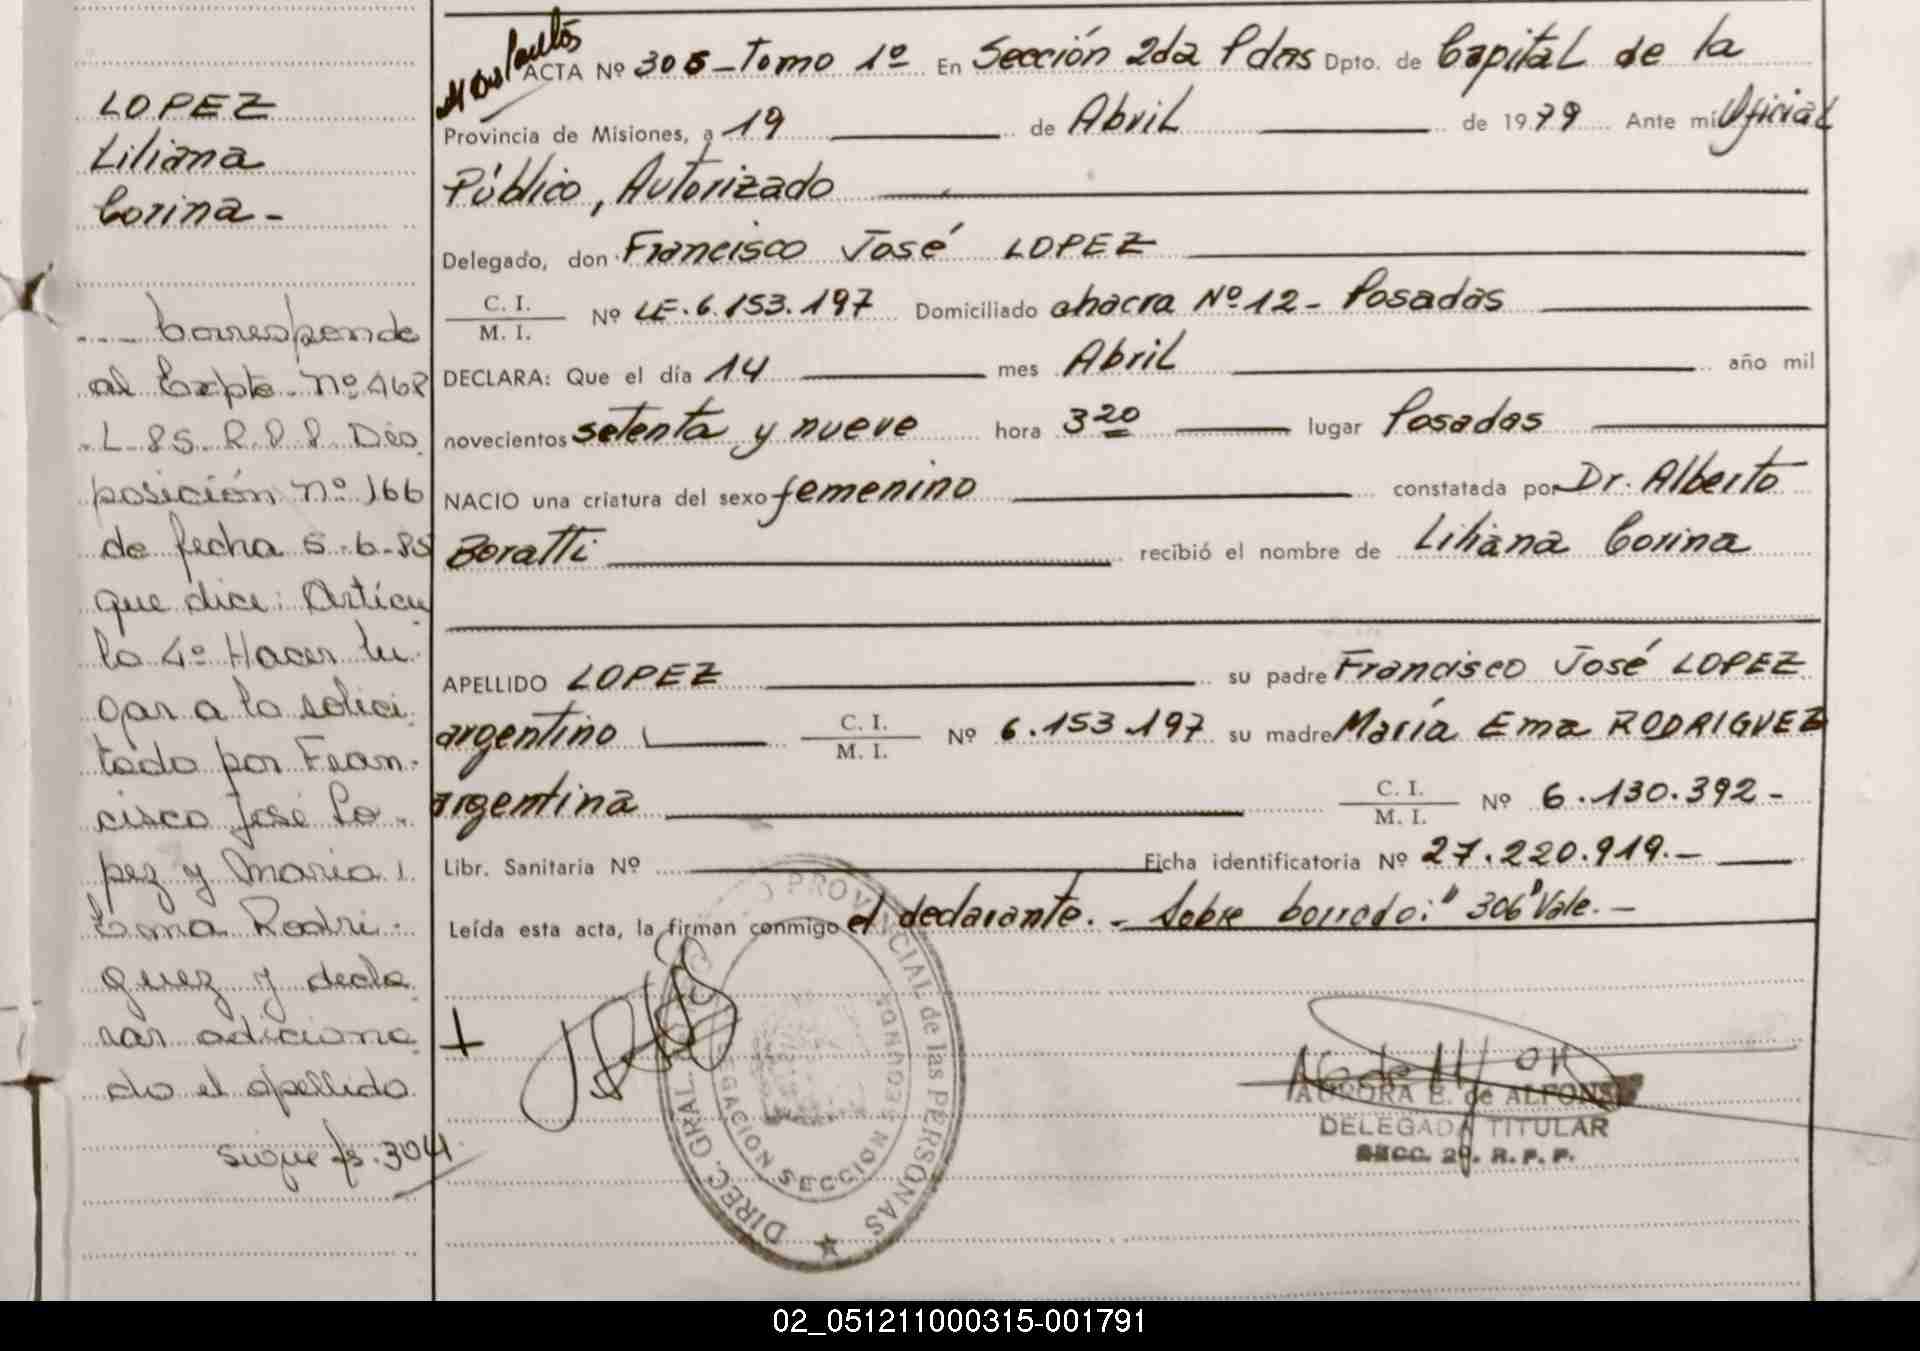 LOPEZ
Liliana
Corina -
Corresponde
al Expte. Nº 468
L-85. R.P.P. Dis
posición Nº 166
de fecha 5-6-85
que dice: Artícu
lo 4º Hacer lu
gar a lo solici
tado por Fran-
cisco José Lo-
pez y María
Ema Rodri-
guez y decla
rar adiciona
do el apellido
sigue fs. 304
ACTA Nº 306 - Tomo 1º En Sección 2da Pdas Dpto. de Capital de la
Provincia de Misiones, a 19 de Abril de 1979 Ante mi Oficial
Público, Autorizado
Delegado, don Francisco José LOPEZ
C. I.
M. I. Nº LE. 6.153.197 Domiciliado chacra Nº 12 - Posadas
DECLARA: Que el día 14 mes Abril año mil
novecientos setenta y nueve hora 3 20 lugar Posadas
NACIO una criatura del sexo femenino constatada por Dr. Alberto
Boratti recibió el nombre de Liliana Corina
APELLIDO LOPEZ su padre Francisco José LOPEZ
argentino C. I.
M. I. Nº 6.153.197 su madre María Ema RODRIGUEZ
argentina C. I.
M. I. Nº 6.130.392 -
Libr. Sanitaria Nº Ficha identificatoria Nº 27.220.919. -
Leída esta acta, la firman conmigo el declarante. - Sobre borrado: "306" Vale. -
PROVINCIAL de las PERSONAS
DIREC. GRAL.
DELEGACION SECCION SEGUNDA
AURORA E. de ALFONSO
DELEGADA TITULAR
SECC. 2ª. R. P. P.
02_051211000315-001791